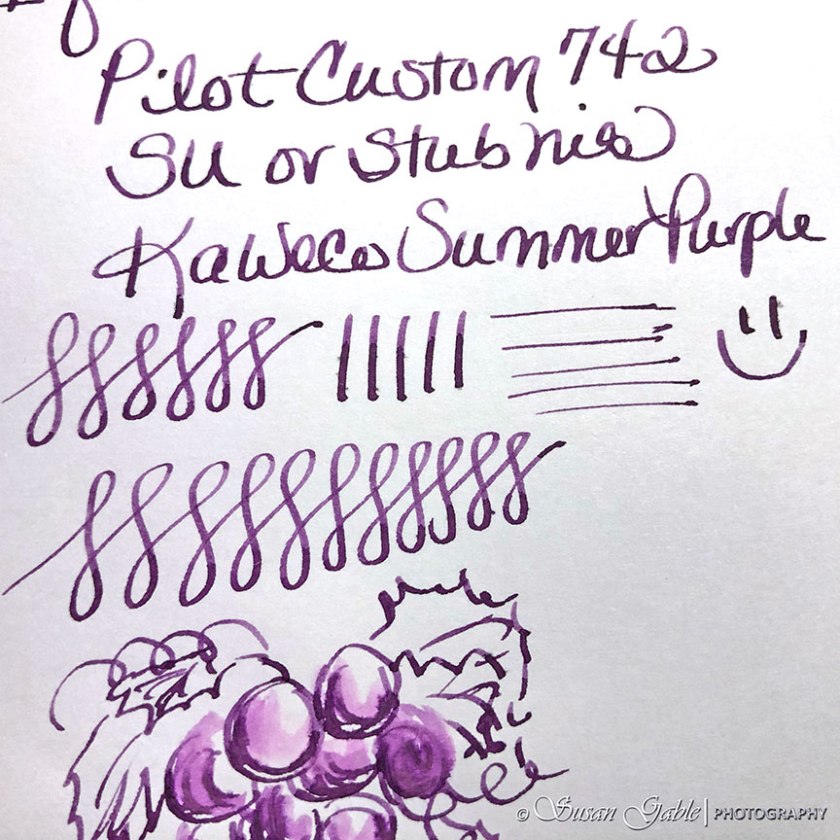 Pilot Custom 742
SU or Stub nib
Kaweco Summer Purple
© Susan Gable | PHOTOGRAPHY